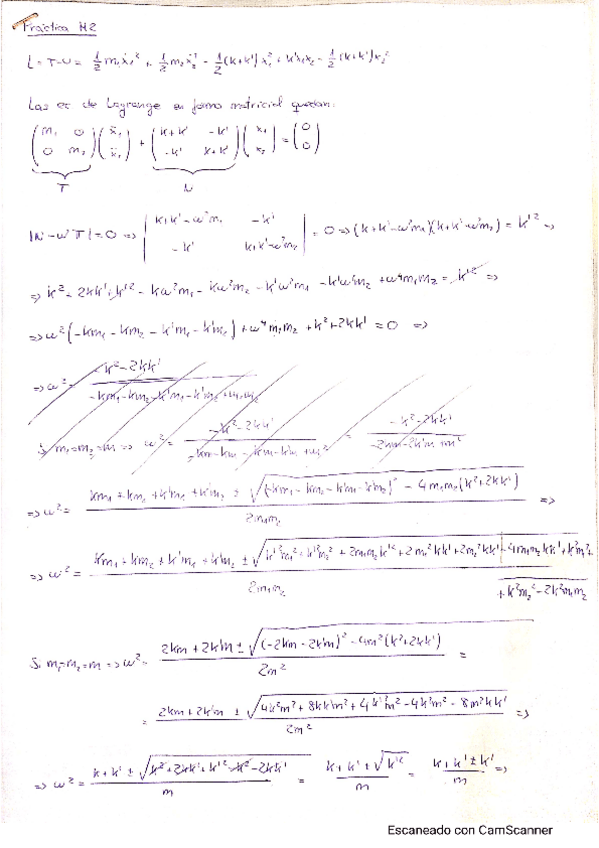 Práctica H2
L = T-U = 1/2 m₁ẋ₁² + 1/2 m₂ẋ₂² - 1/2 (k+k')x₁² + k'x₁x₂ - 1/2 (k+k')x₂²
Las ec de Lagrange en forma matricial quedan:
(m₁ 0) (ẍ₁) + (k+k' -k') (x₁) = (0)
(0 m₂) (ẍ₂) (-k' k+k') (x₂) (0)
T N
|N-ω²T| = 0 => | k+k'-ω²m₁ -k' | = 0 => (k+k'-ω²m₁)(k+k'-ω²m₂) = k'² =>
| -k' k+k'-ω²m₂ |
=> k² + 2kk' + k'² - kω²m₁ - kω²m₂ - k'ω²m₁ - k'ω²m₂ + ω⁴m₁m₂ = k'² =>
=> ω²(-km₁ - km₂ - k'm₁ - k'm₂) + ω⁴m₁m₂ + k² + 2kk' = 0 =>
=> ω² = (-k²-2kk') / (-km₁-km₂-k'm₁-k'm₂+m₁m₂)
Si m₁=m₂=m => ω² = (-k²-2kk') / (-km-km-k'm-k'm+m²) = (-k²-2kk') / (-2km-2k'm+m²)
=> ω² = (km₁+km₂+k'm₁+k'm₂ ± √((-km₁-km₂-k'm₁-k'm₂)² - 4m₁m₂(k²+2kk'))) / 2m₁m₂ =>
=> ω² = (km₁+km₂+k'm₁+k'm₂ ± √(k'²m₁²+k'²m₂²+2m₁m₂k'²+2m₁²kk'+2m₂²kk'-4m₁m₂kk'+k²m₁²+
2m₁m₂
+k²m₂²-2k²m₁m₂
Si m₁=m₂=m => ω² = (2km+2k'm ± √((-2km-2k'm)² - 4m²(k²+2kk'))) / 2m² =
= (2km+2k'm ± √(4k²m²+8kk'm²+4k'²m²-4k²m²-8m²kk')) / 2m² =>
=> ω² = (k+k' ± √(k²+2kk'+k'²-k²-2kk')) / m = (k+k' ± √k'²) / m = (k+k' ± k') / m =>
Escaneado con CamScanner